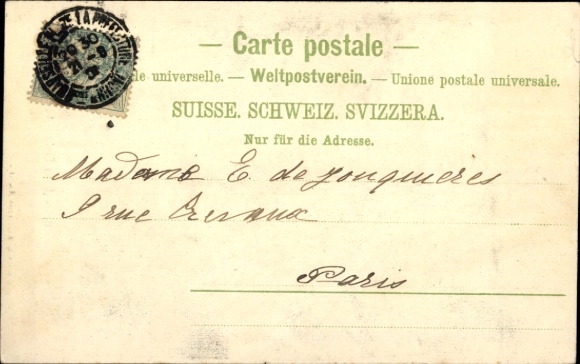 — Carte postale —
le universelle. — Weltpostverein. — Unione postale universale.
SUISSE. SCHWEIZ. SVIZZERA.
Nur für die Adresse.
Madame E. de Jonquières
9 rue Crevaux
Paris